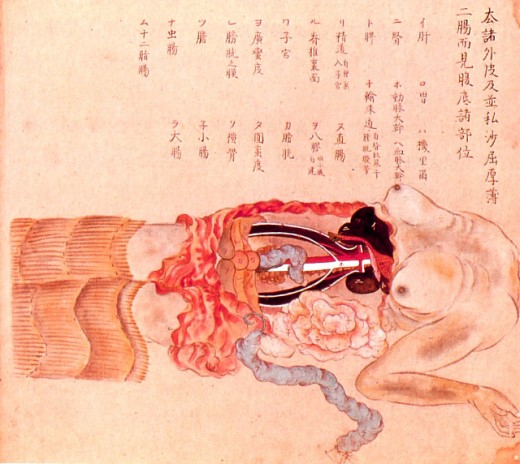 諸外皮及並私沙屈厚薄
二腸而見腹底諸部位
イ 肝 ロ 胃 ハ 機里爾
ニ 腎 ホ 動脈大幹 ヘ 血脈大幹
ト チ 輸尿道
リ 精道 入子宮 ヌ 直腸
ル 脊椎裏面 ヲ 八
ワ 子宮 カ 膀胱
ヨ 廣蜜度 タ 圓蜜度
レ 膀胱之膜 ソ 横骨
ツ 膽 子 小腸
ナ 虫腸 ラ 大腸
ム 十二指腸